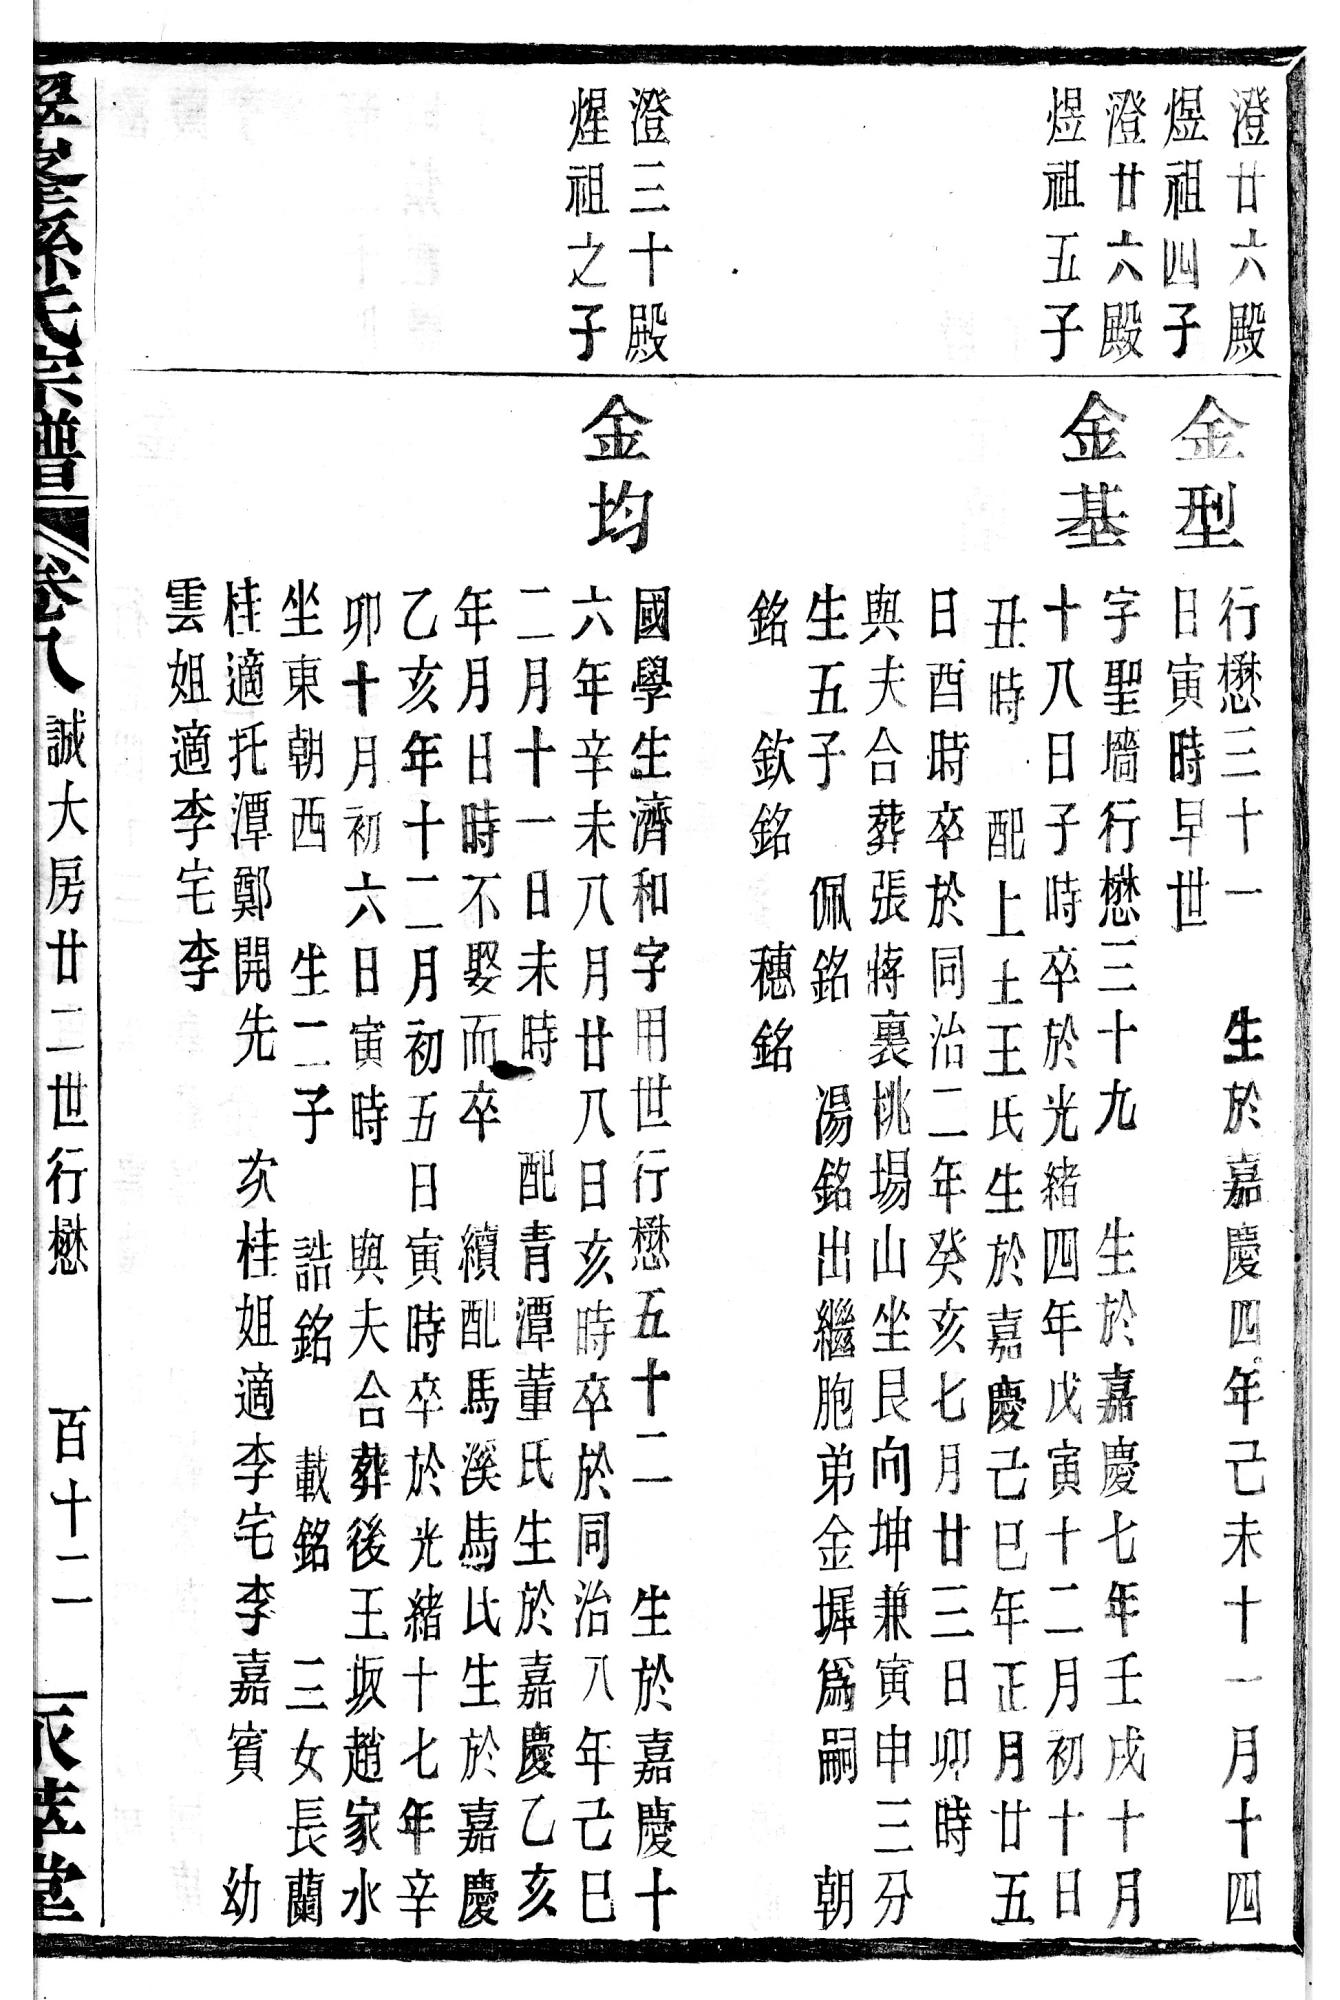 澄廿六殿
煜祖四子
金型
行懋三十一　生於嘉慶四年己未十一月十四
日寅時早世
澄廿六殿
煜祖五子
金基
字聖墻行懋三十九　生於嘉慶七年壬戌十月
十八日子時卒於光緒四年戊寅十二月初十日
丑時　配上土王氏生於嘉慶己巳年正月廿五
日酉時卒於同治二年癸亥七月廿三日卯時
與夫合葬張蔣裏桃場山坐艮向坤兼寅申三分
生五子　佩銘　湯銘出繼胞弟金墀爲嗣　朝
銘　欽銘　穗銘
澄三十殿
煋祖之子
金均
國學生濟和字用世行懋五十二　生於嘉慶十
六年辛未八月廿八日亥時卒於同治八年己巳
二月十一日未時　配青潭董氏生於嘉慶乙亥
年月日時不娶而卒　續配馬溪馬氏生於嘉慶
乙亥年十二月初五日寅時卒於光緒十七年辛
卯十月初六日寅時　與夫合葬後王坂趙家水
坐東朝西　生二子　誥銘　載銘　三女長蘭
桂適托潭鄭開先　次桂姐適李宅李嘉賓　幼
雲姐適李宅李
孫氏宗譜　卷八　誠大房廿二世行懋　百十二　萃堂